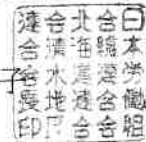 日本労働組
合総連合会
北海道連合
会清水地区
連合会長印